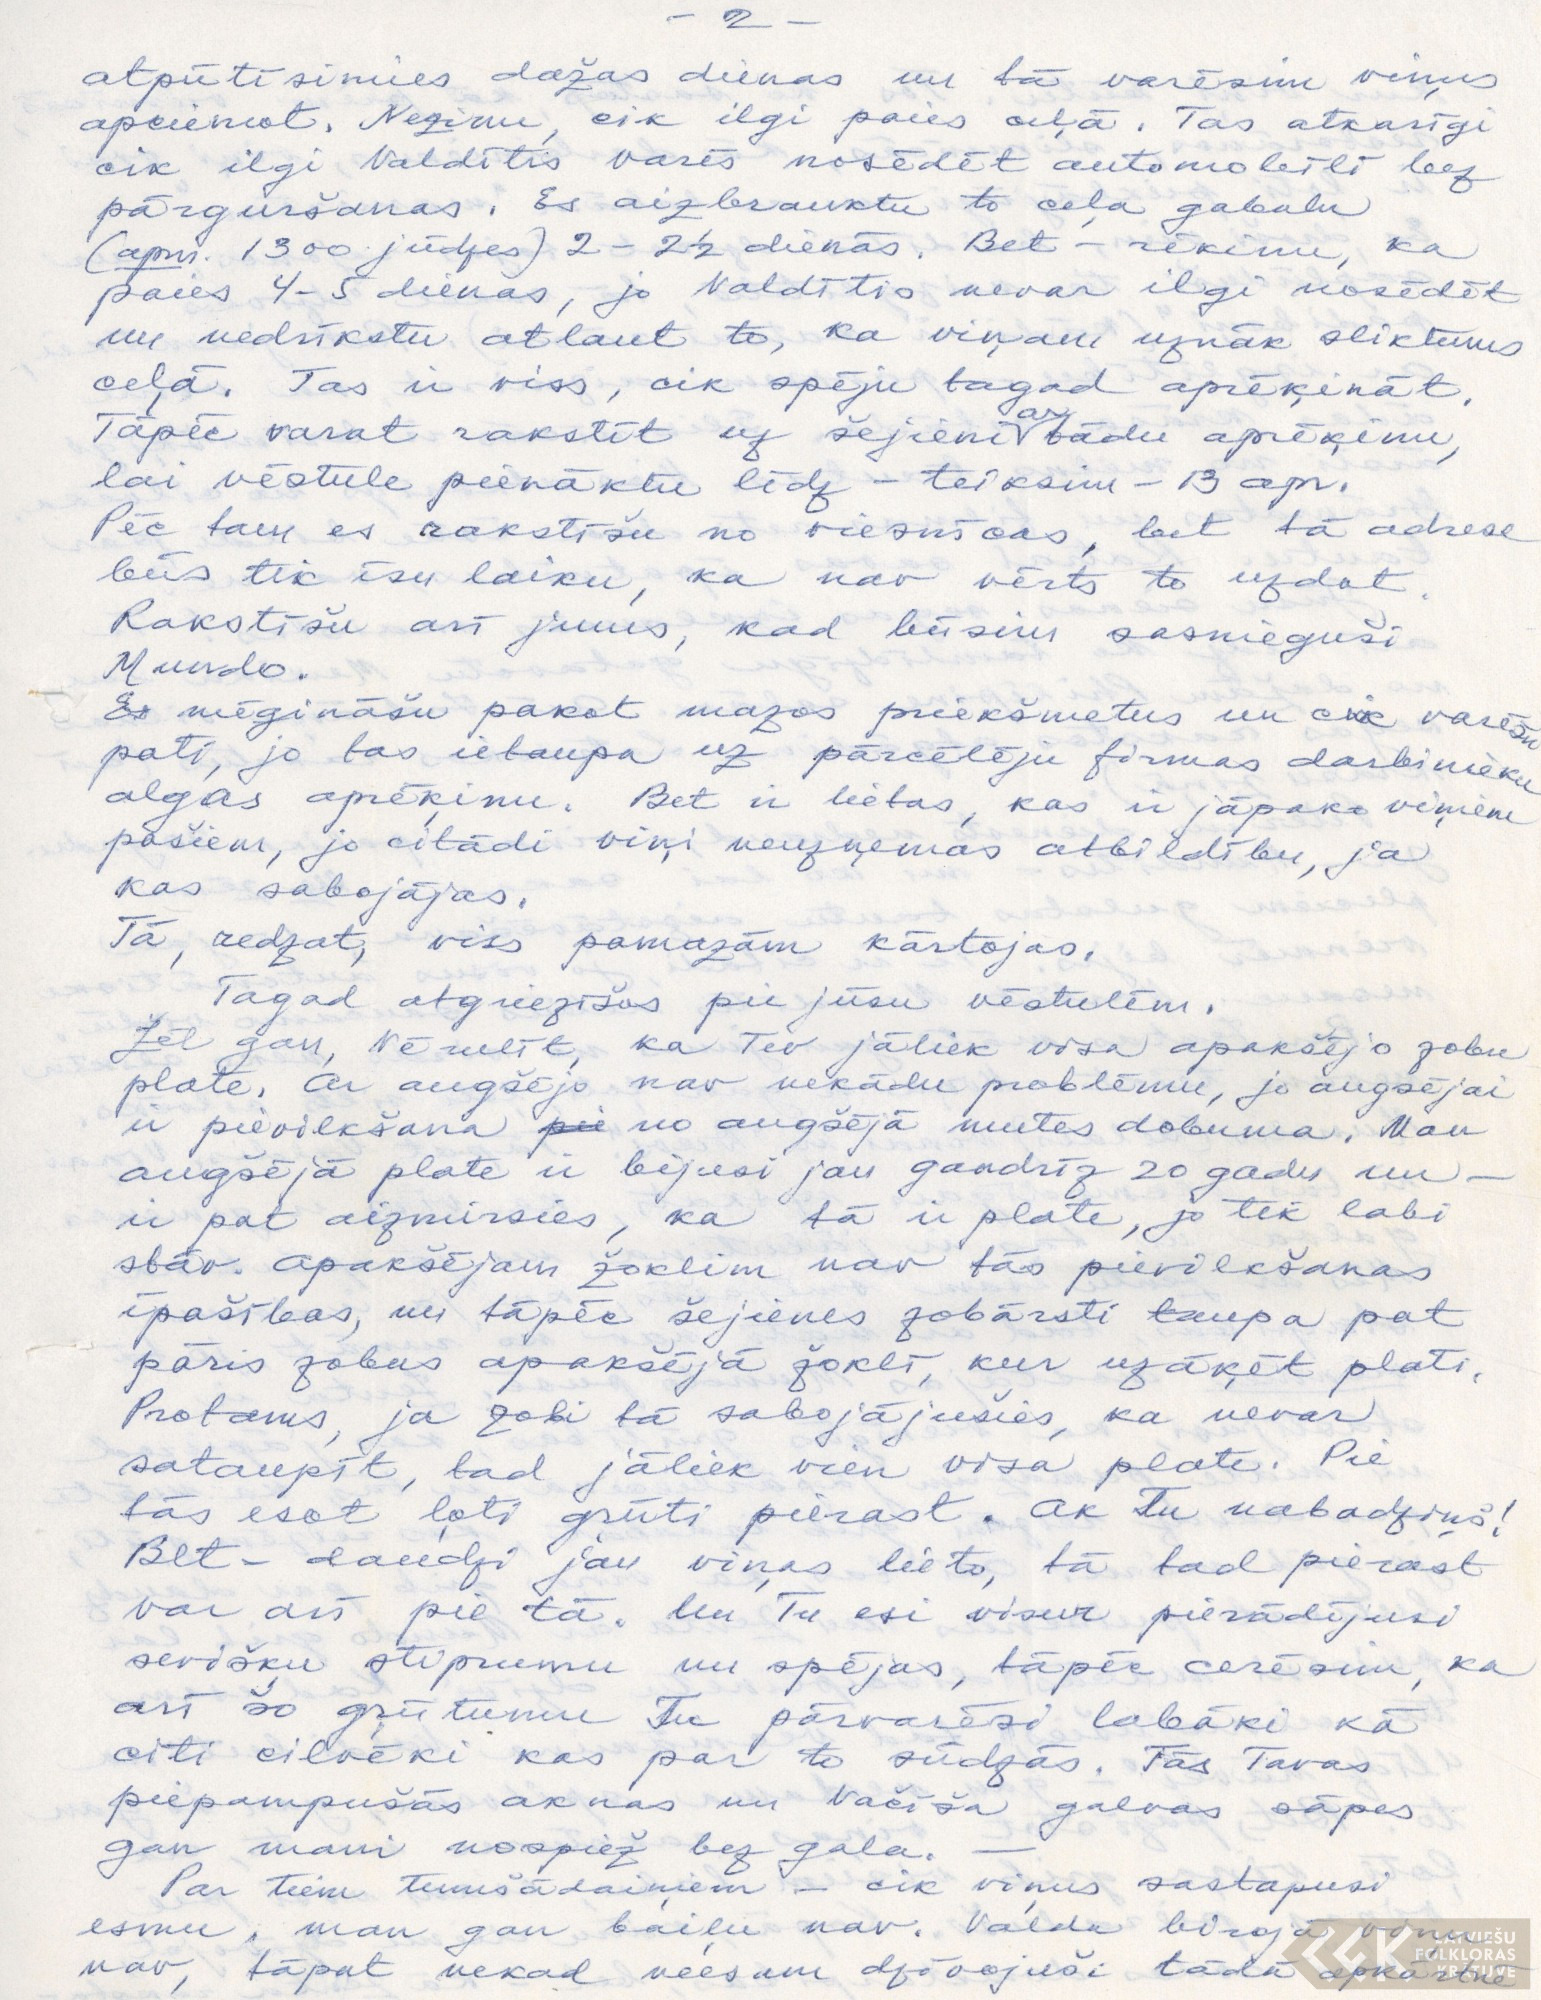 - 2 -
atpūtīsimies dažas dienas un tā varēsim viņus
apciemot. Nezinu, cik ilgi paies ceļā. Tas atkarīgi
cik ilgi Valdītis varēs nosēdēt automobīlī bez
pārguršanas. Es aizbrauktu to ceļa gabalu
(apm. 1300 jūdzes) 2 - 2½ dienās. Bet - rēķinu, ka
paies 4-5 dienas, jo Valdītis nevar ilgi nosēdēt
un nedrīkstu atļaut to, ka viņam uznāk sliktums
ceļā. Tas ir viss, cik spēju tagad aprēķināt.
Tāpēc varat rakstīt uz šejieni ar tādu aprēķinu,
lai vēstule pienāktu līdz - teiksim - 13 apr.
Pēc tam es rakstīšu no viesnīcas, bet tā adrese
būs tik īsu laiku, ka nav vērts to uzdot.
Rakstīšu arī jums, kad būsim sasnieguši
Mundo.
Es mēģināšu pakot mazos priekšmetus un cik varēšu
pati, jo tas ietaupa uz pārcēlēju firmas darbinieku
algas aprēķinu. Bet ir lietas, kas ir jāpako viņiem
pašiem, jo citādi viņi neuzņemas atbildību, ja
kas sabojājas.
Tā, redzat, viss pamazām kārtojas.
Tagad atgriezīšos pie jūsu vēstulēm.
Žēl gan, Vērulīt, ka Tev jāliek visa apakšējo zobu
plate. Ar augšējo nav nekādu problēmu, jo augšējai
ir pievilkšana pie no augšējā mutes dobuma. Man
augšējā plate ir bijusi jau gandrīz 20 gadu un -
ir pat aizmirsies, ka tā ir plate, jo tik labi
stāv. Apakšējam žoklim nav tās pievilkšanas
īpašības, un tāpēc šejienes zobārsti taupa pat
pāris zobus apakšējā žoklī, kur uzāķēt plati.
Protams, ja zobi tā sabojājušies, ka nevar
sataupīt, tad jāliek vien visa plate. Pie
tās esot ļoti grūti pierast. Ak Tu nabadziņš!
Bet - daudzi jau viņas lieto, tā tad pierast
var arī pie tā. Un Tu esi visur pierādījusi
sevišķu stiprumu un spējas, tāpēc cerēsim, ka
arī šo grūtumu Tu pārvarēsi labāki kā
citi cilvēki kas par to sūdzās. Tās Tavas
piepampušās aknas un Vačīša galvas sāpes
gan mani nospiež bez gala. -
Par tiem tumšādaiņiem - cik viņus sastapusi
esmu, man gan baiļu nav. Valda birojā viņu
nav, tāpat nekad neesam dzīvojuši tādā apkārtnē
LATVIEŠU
FOLKLORAS
KRĀTUVE